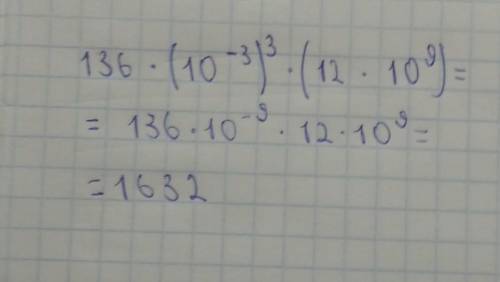 136 · (10⁻³)³ · (12 · 10⁹) =
= 136 · 10⁻⁹ · 12 · 10⁹ =
= 1632